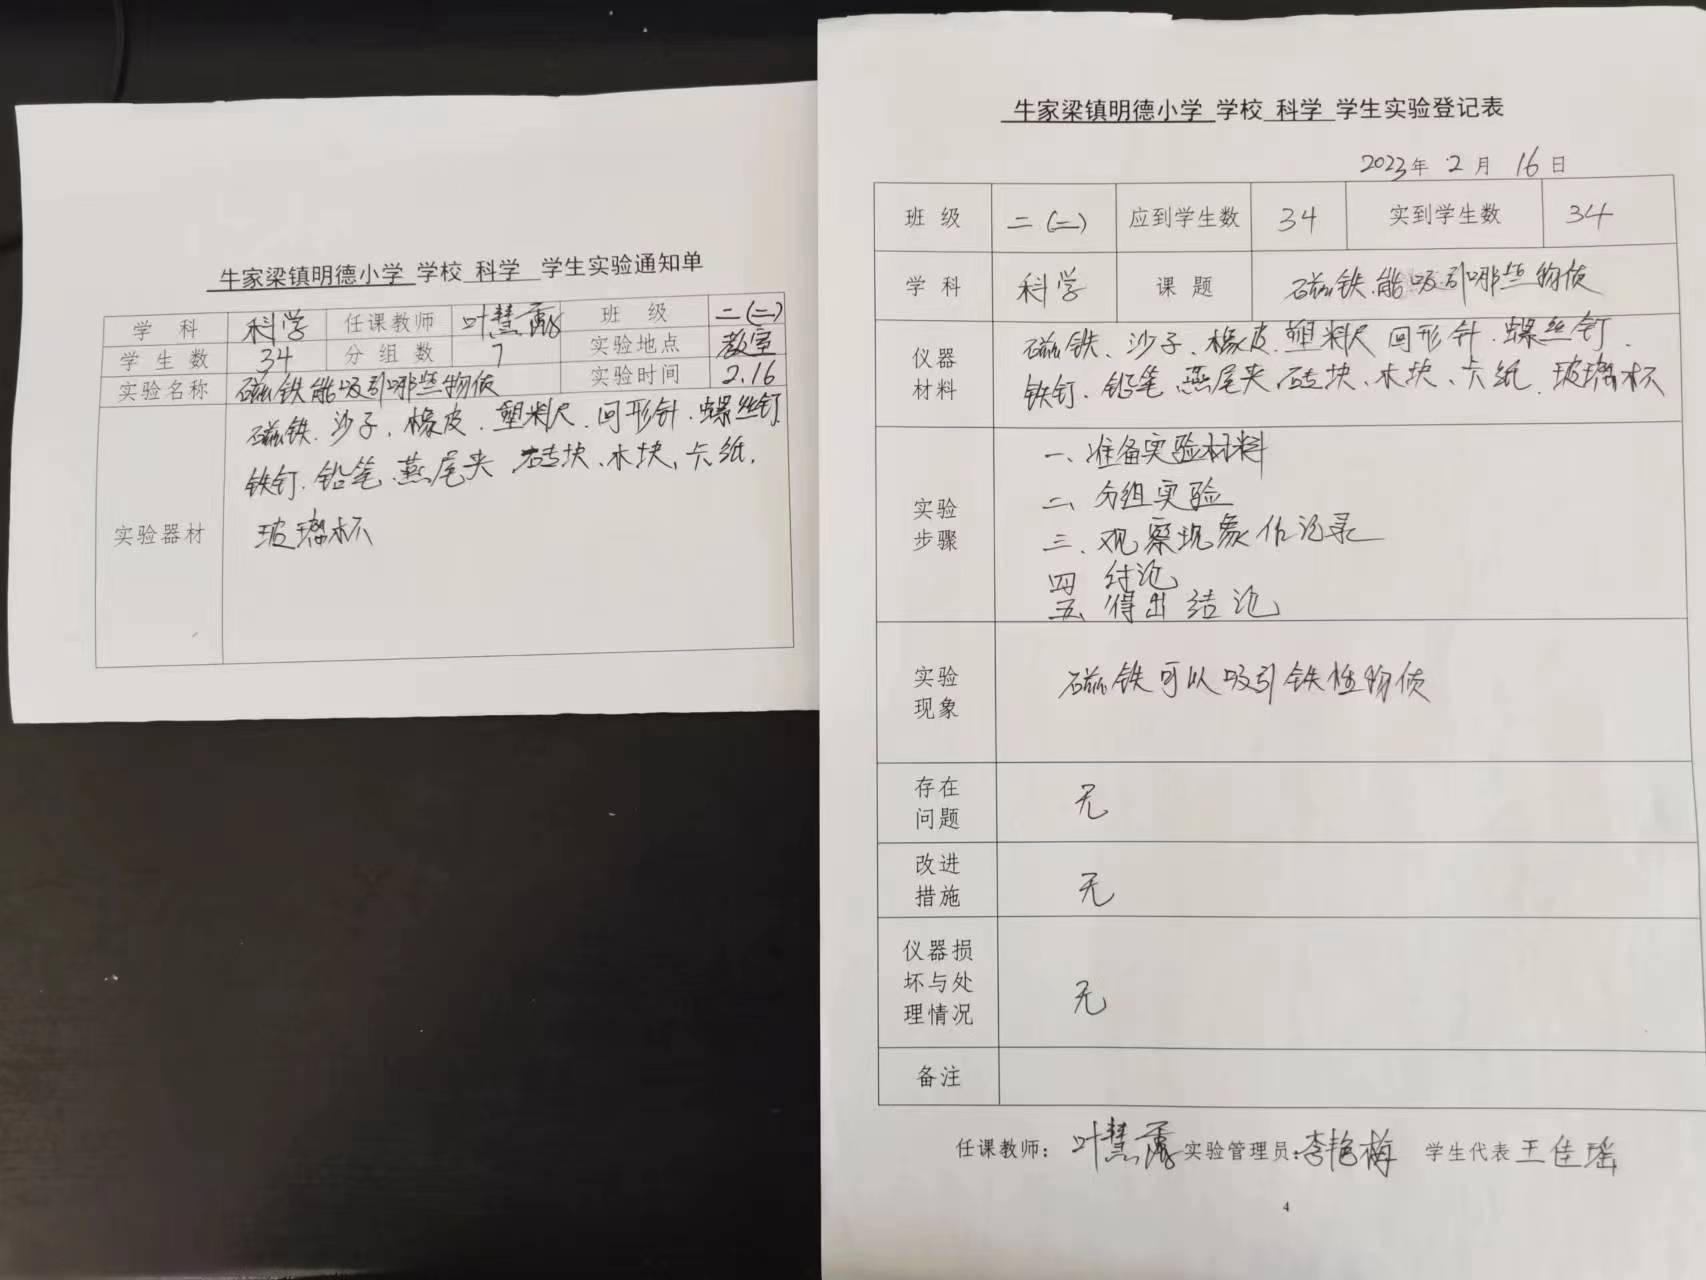 牛家梁镇明德小学 学校 科学 学生实验通知单
学 科 科学 任课教师 叶慧 班 级 二(二)
学生数 34 分组数 7 实验地点 教室
实验名称 磁铁能吸引哪些物质 实验时间 2.16
实验器材
磁铁、沙子、橡皮、塑料尺、回形针、螺丝钉、
铁钉、铅笔、燕尾夹 砖块、木块、卡纸、
玻璃杯
牛家梁镇明德小学 学校 科学 学生实验登记表
2023年 2月 16日
班 级 二(二) 应到学生数 34 实到学生数 34
学 科 科学 课 题 磁铁能吸引哪些物质
仪器
材料
磁铁、沙子、橡皮、塑料尺 回形针、螺丝钉、
铁钉、铅笔、燕尾夹 砖块、木块、卡纸、玻璃杯
实验
步骤
一、准备实验材料
二、分组实验
三、观察现象作记录
四 讨论
五、得出结论
实验
现象
磁铁可以吸引铁性物质
存在
问题
无
改进
措施
无
仪器损
坏与处
理情况
无
备注
任课教师： 叶慧 实验管理员：李艳梅 学生代表 王佳瑶
4